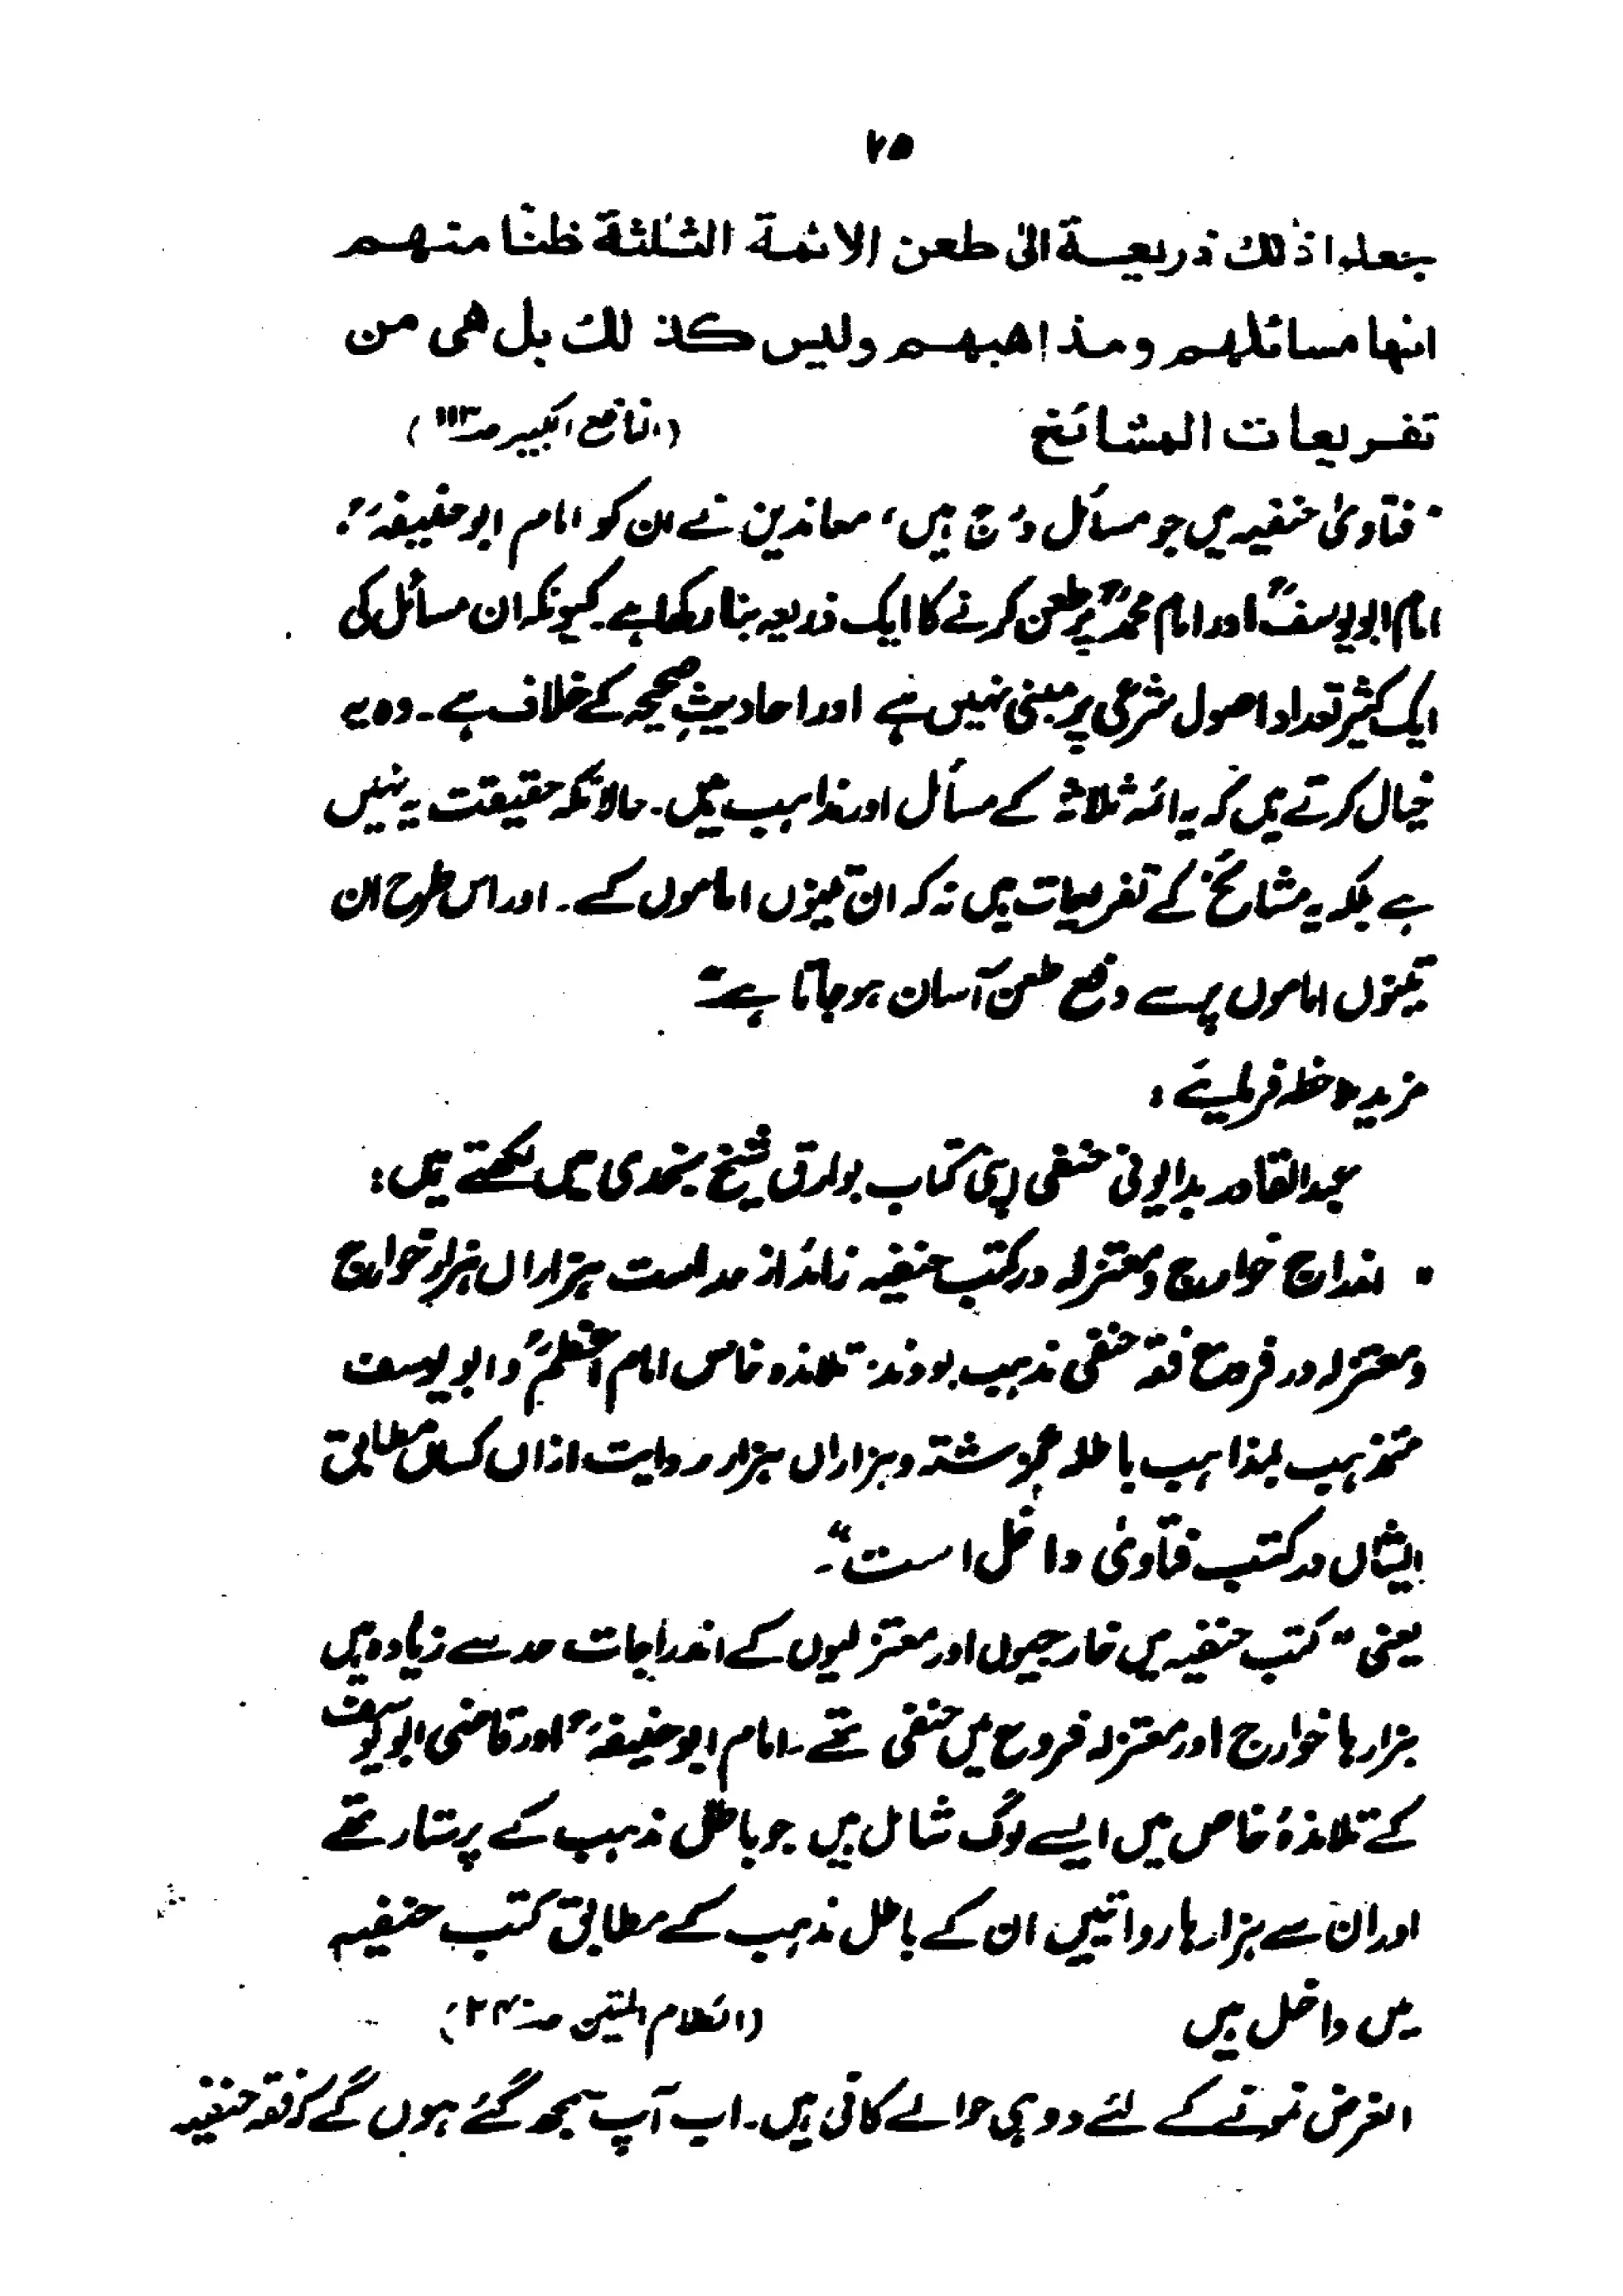 ۲۵
جعلوا ذٰلك ذريعة الىٰ طعن الائمة الثلثة ظنًا منهم
انها مسائلهم ومذاهبهم وليس كذلك بل هى من
تفريعات المشائخ (النافع الکبیر صـ۱۱۳)
"فتاویٰ حنفیہ میں جو مسائل درج ہیں، معاندین نے ان کو امام ابوحنیفہؒ،
امام ابویوسفؒ اور امام محمدؒ پر طعن کرنے کا ایک ذریعہ بنا رکھا ہے۔ کیونکہ ان مسائل کی
ایک کثیر تعداد اصول شرعی پر مبنی نہیں ہے اور احادیثِ صحیحہ کے خلاف ہے۔ وہ یہ
خیال کرتے ہیں کہ یہ ائمہ ثلاثہؒ کے مسائل اور مذاہب ہیں۔ حالانکہ حقیقت یہ نہیں
ہے بلکہ یہ مشائخ کے تفریعات ہیں نہ کہ ان تینوں اماموں کے۔ اور اس طرح ان
تینوں اماموں پر سے دفع طعن آسان ہوجاتا ہے"
مزید ملاحظہ فرمایئے:
عبدالقادر بدایونی حنفی اپنی کتاب بوارق شیخ نجدی میں لکھتے ہیں:
"اندراج خوارج ومعتزلہ درکتب حنفیہ زائد از حد است ہزاراں ہزار خوارج
ومعتزلہ در فروع فقہ حنفی مذہب بودند تلامذہ خاص امام اعظمؒ وابویوسف
متمذہب بمذاہب باطلہ گزشتہ وہزاراں ہزار روایت ازاں کساں مطابق
ایشاں در کتب فتاویٰ داخل است"۔
یعنی "کتب حنفیہ میں خارجیوں اور معتزلیوں کے اندراجات حد سے زیادہ ہیں
ہزارہا خوارج اور معتزلہ فروع میں حنفی تھے۔ امام ابوحنیفہؒ اور قاضی ابویوسف
کے تلامذۂ خاص میں ایسے لوگ شامل ہیں جو باطل مذہب کے پرستار تھے
اور ان سے ہزارہا روایتیں ان کے باطل مذہب کے مطابق کتب حنفیہ
میں داخل ہیں (الکلام المتین صـ۲۴)
الغرض نمونے کے لئے دو ہی حوالے کافی ہیں۔ اب آپ سمجھ گئے ہوں گے کہ فقہ حنفیہ